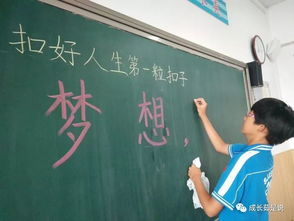 扣好人生第一粒扣子
梦想,
成长茹是说